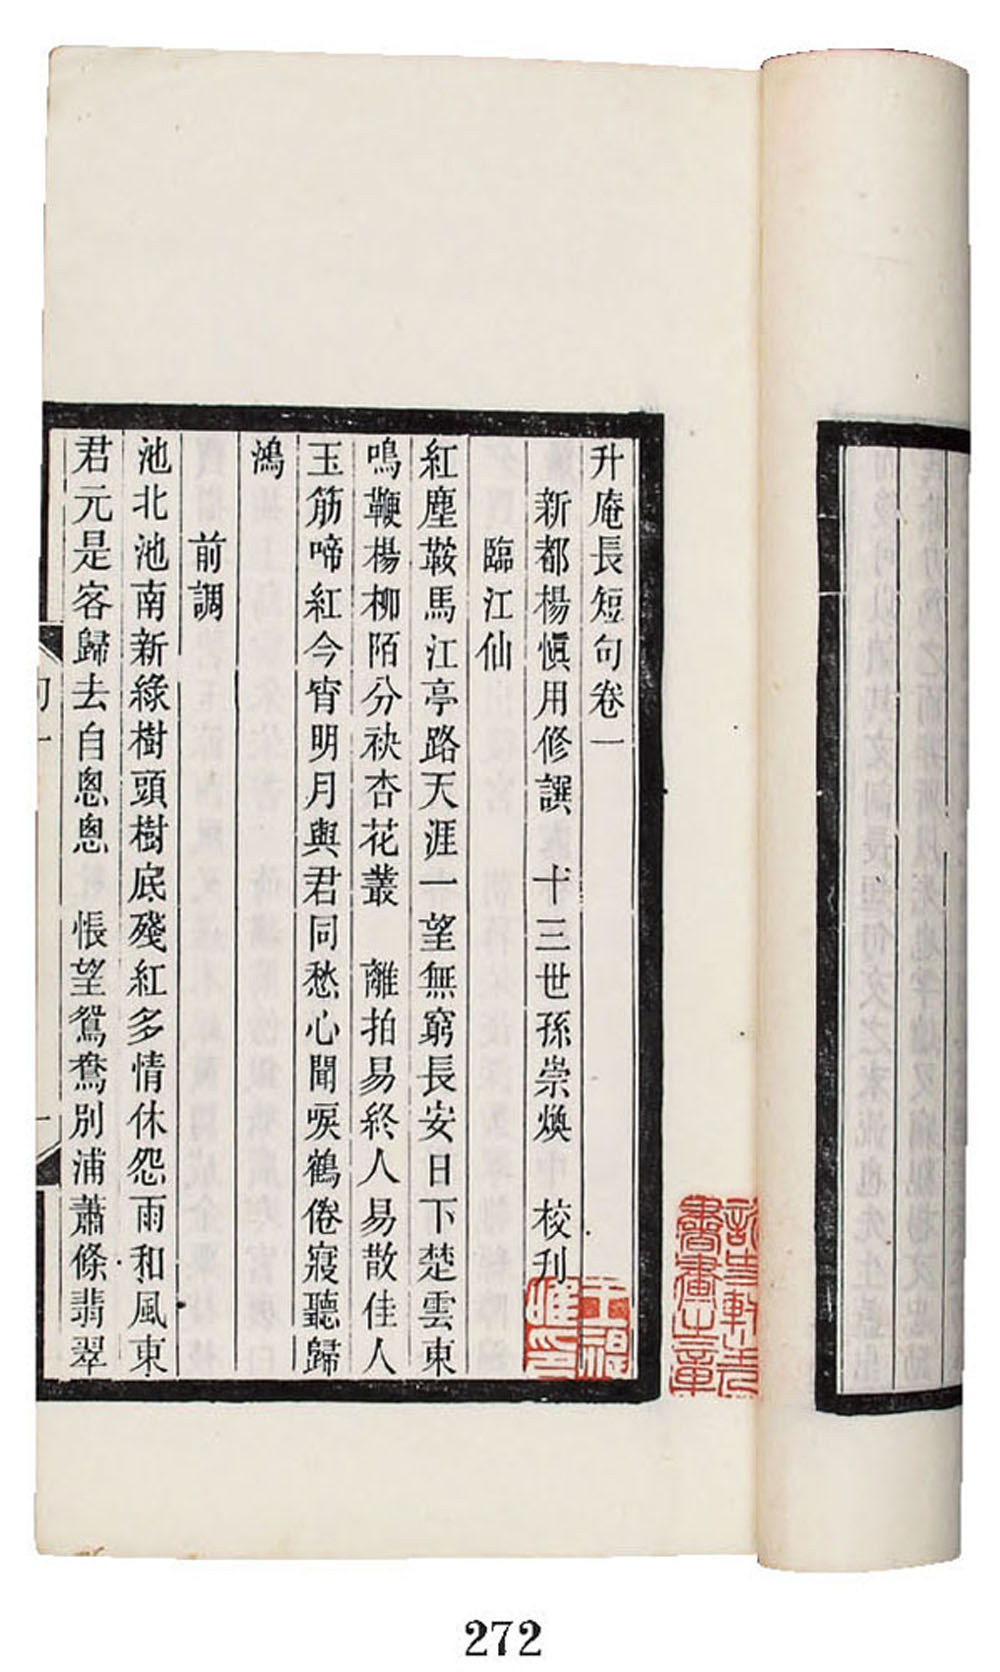 升庵長短句卷一
新都楊慎用修譔　十三世孫崇煥　校刊
臨江仙
紅塵鞍馬江亭路天涯一望無窮長安日下楚雲東
鳴鞭楊柳陌分袂杏花叢　離拍易終人易散佳人
玉筋啼紅今宵明月與君同愁心聞唳鶴倦寢聽歸
鴻
前調
池北池南新綠樹頭樹底殘紅多情休怨雨和風東
君元是客歸去自悤悤　悵望鴛鴦別浦蕭條翡翠
272